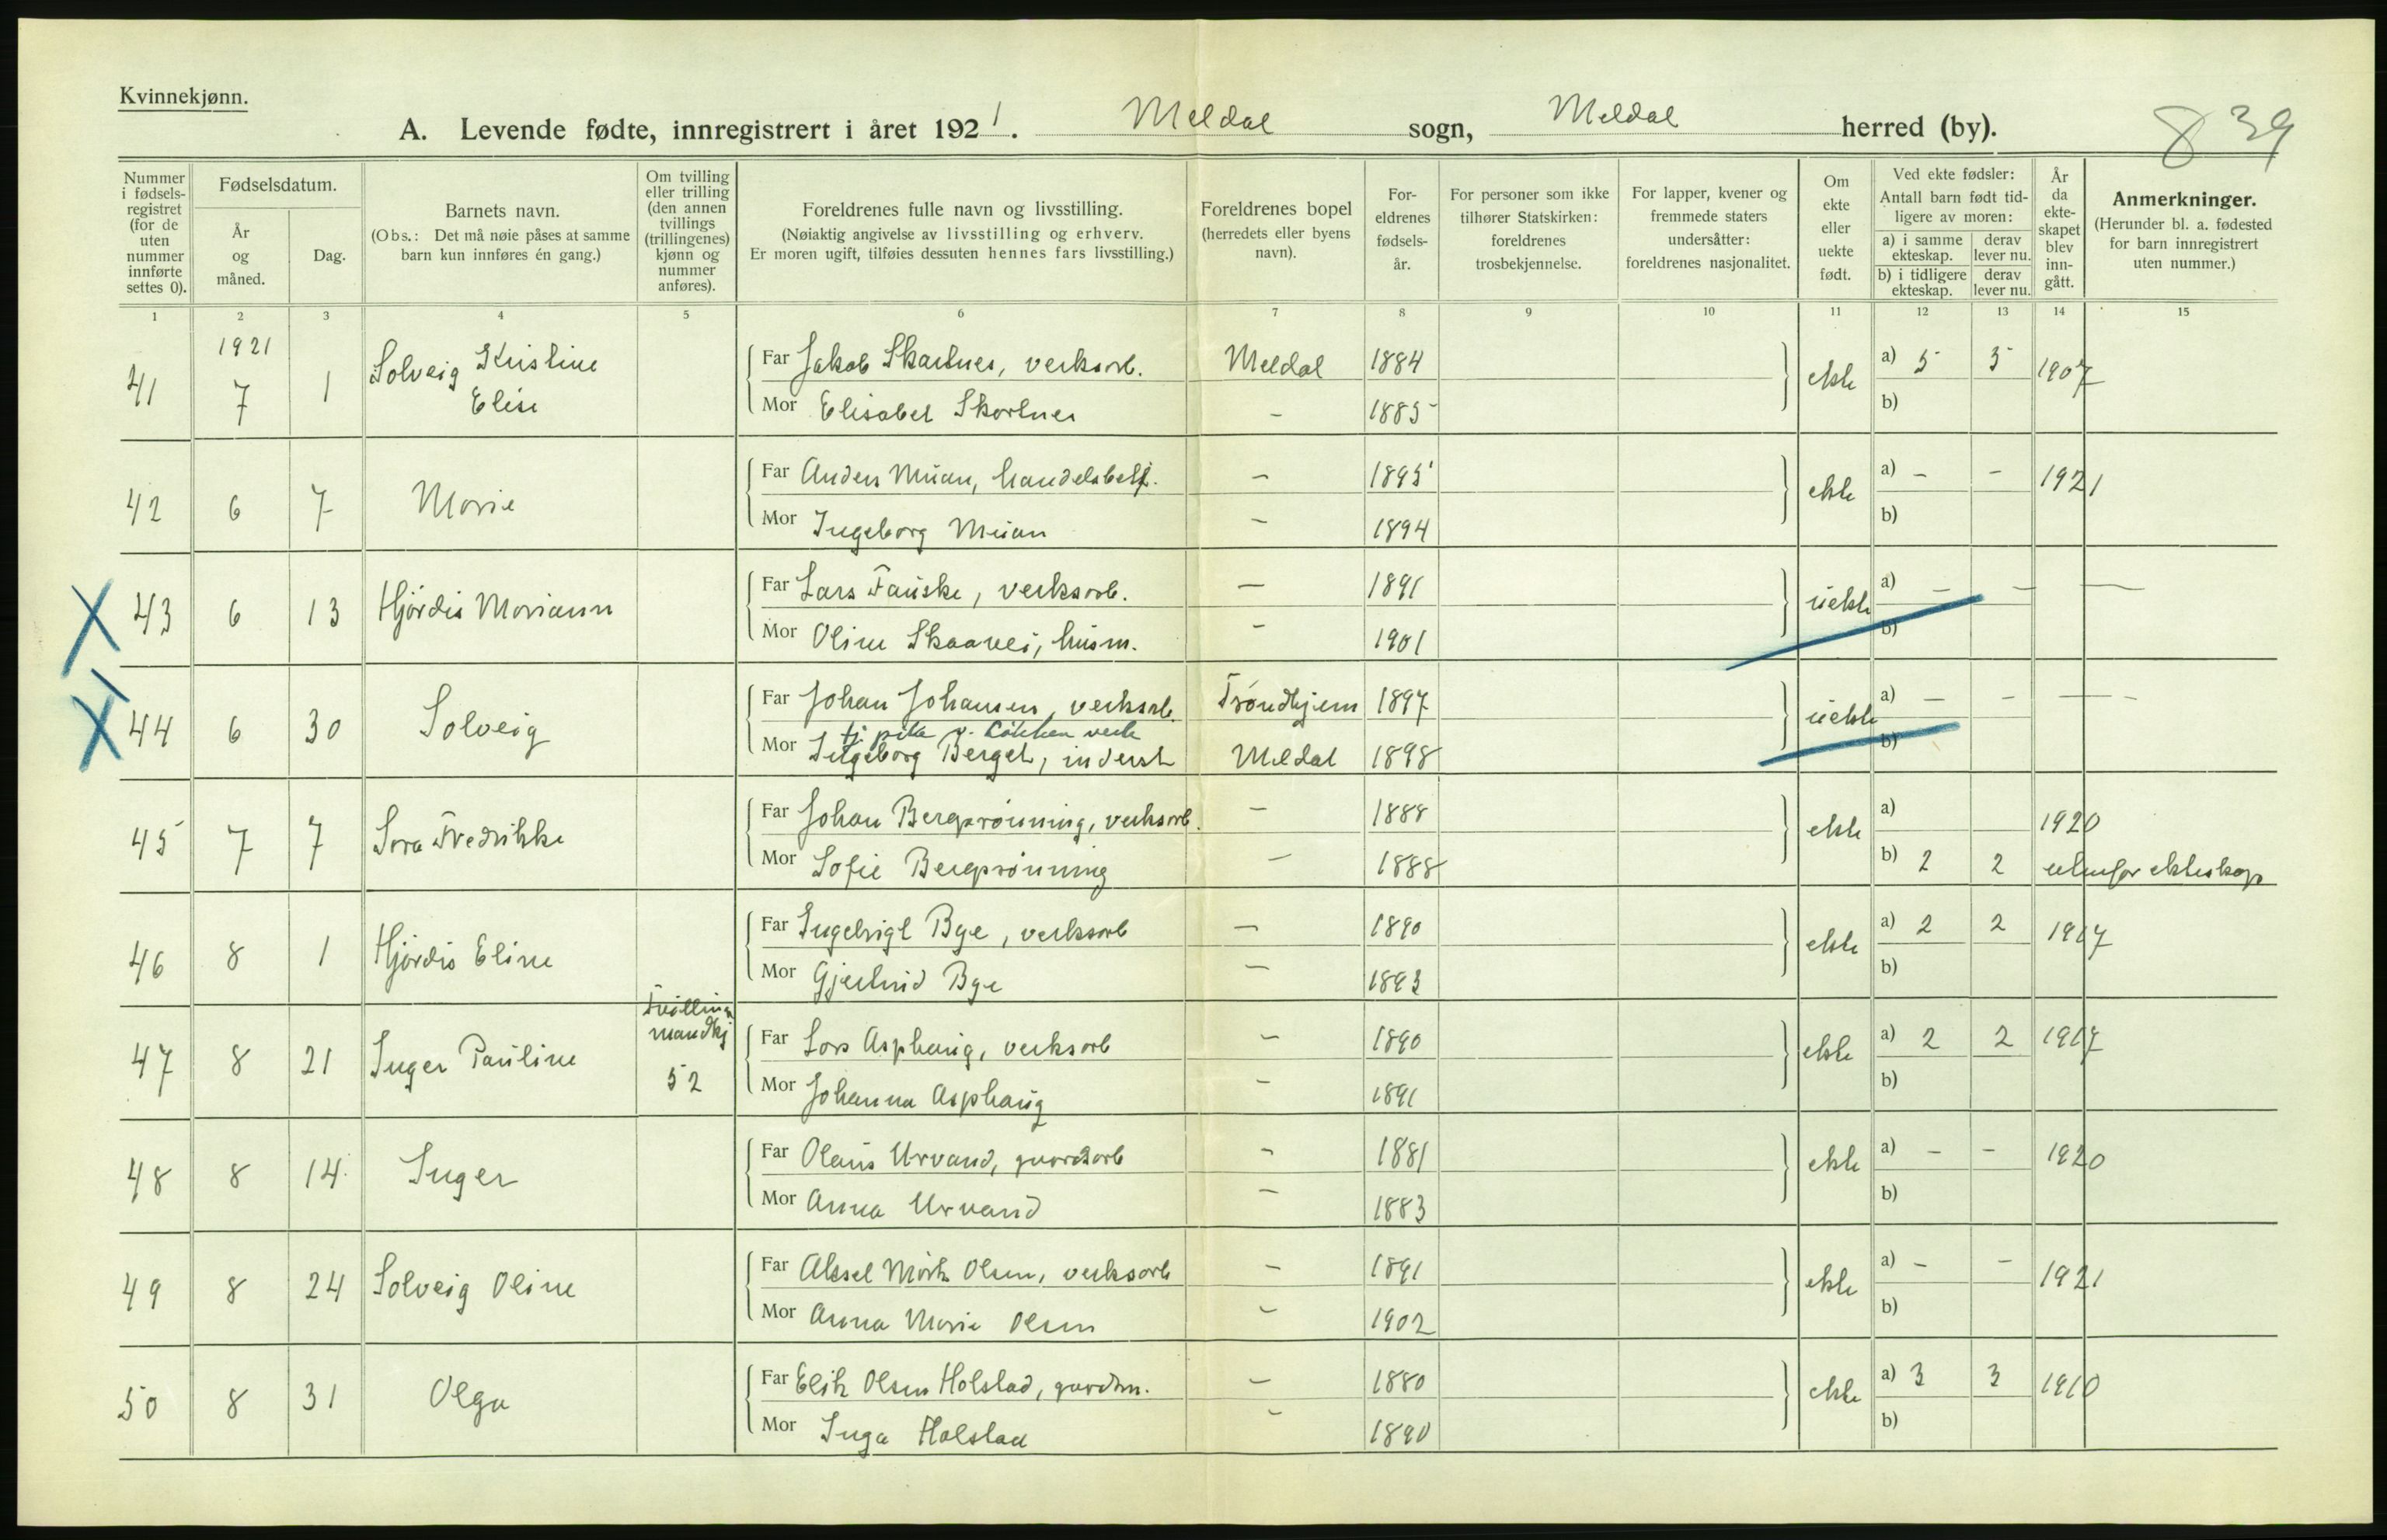 Kvinnekjønn.
A. Levende fødte, innregistrert i året 1921. Meldal sogn, Meldal herred (by).
839
Nummer i fødsels-registret (for de uten nummer innførte settes 0).
Fødselsdatum.
År og måned.
Dag.
Barnets navn.
(Obs.: Det må nøie påses at samme barn kun innføres én gang.)
Om tvilling eller trilling (den annen tvillings (trillingenes) kjønn og nummer anføres).
Foreldrenes fulle navn og livsstilling.
(Nøiaktig angivelse av livsstilling og erhverv.
Er moren ugift, tilføies dessuten hennes fars livsstilling.)
Foreldrenes bopel (herredets eller byens navn).
For-eldrenes fødsels-år.
For personer som ikke tilhører Statskirken: foreldrenes trosbekjennelse.
For lapper, kvener og fremmede staters undersåtter: foreldrenes nasjonalitet.
Om ekte eller uekte født.
Ved ekte fødsler:
Antall barn født tid-ligere av moren:
a) i samme ekteskap.
derav lever nu.
b) i tidligere ekteskap.
derav lever nu.
År da ekte-skapet blev inn-gått.
Anmerkninger.
(Herunder bl. a. fødested for barn innregistrert uten nummer.)
1 2 3 4 5 6 7 8 9 10 11 12 13 14 15
1921
41 7 1 Solveig Kristine Elise Far Jakob Skartnes, verksarb. Meldal 1884 ekte a) 5 5 1907
Mor Elisabet Skartnes – 1885 b)
42 6 7 Marie Far Anders Muan, handelsbetj. – 1895 ekte a) – – 1921
Mor Ingeborg Muan – 1894 b)
X 43 6 13 Hjördis Mariann Far Lars Fauske, verksarb. – 1891 uekte a) – – –
Mor Oline – 1901 b)
X 44 6 30 Solveig Far Johan Johansen, verksarb. Tröndhjem 1897 uekte a) – – –
v. Løkken verk
Mor Ingeborg Berget, inderst Meldal 1898 b)
45 7 7 Fredrikke Far Johan Bergsrönning, verksarb. – 1888 ekte a) 1920
Mor Sofie Bergsrönning – 1888 b) 2 2 utenfor ekteskap
46 8 1 Hjördis Eline Far Ingebrigt Bye, verksarb – 1890 ekte a) 2 2 1917
Mor Gjertrud Bye – 1893 b)
47 8 21 Inger Pauline Tvilling mandkj 52 Far Lars Asphaug, verksarb – 1890 ekte a) 2 2 1917
Mor Johanna Asphaug – 1891 b)
48 8 14 Inger Far Olaus Urvand, gaardsarb – 1881 ekte a) – – 1920
Mor Anna Urvand – 1883 b)
49 8 24 Solveig Oline Far Aksel Mörk Olsen, verksarb – 1891 ekte a) – – 1921
Mor Anna Marie Olsen – 1902 b)
50 8 31 Olga Far Olsen Holstad, gaardm. – 1880 ekte a) 3 3 1910
Mor Inga Holstad – 1890 b)